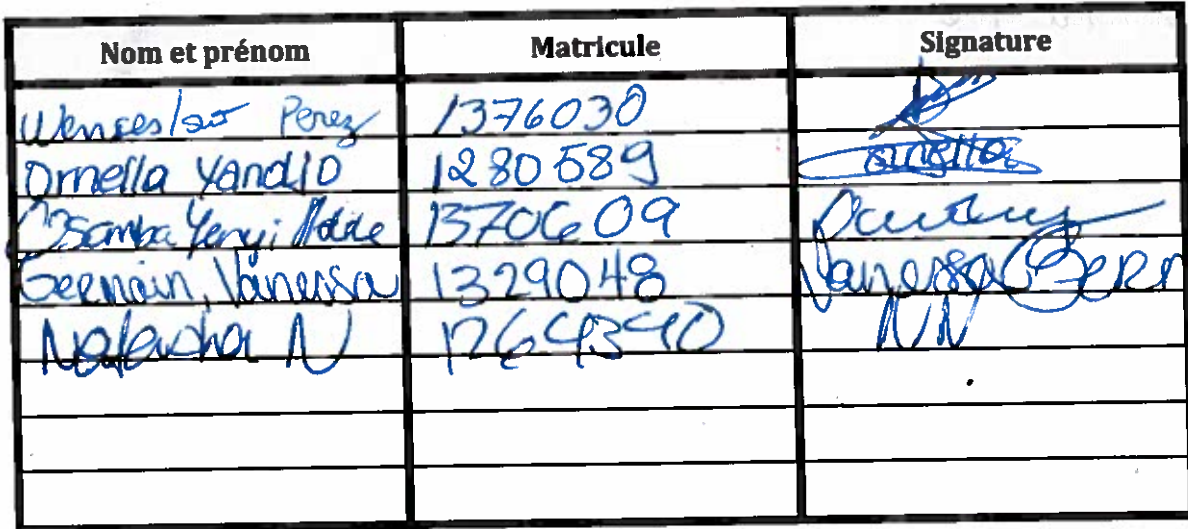 Nom et prénom Matricule Signature
Wenceslao Perez 1376030
Ornella Yandjo 1280589 Ornella
Yenyi 1370609
Germain, Vanessa 1329048 Vanessa Germ
Natacha N 1264340 NN